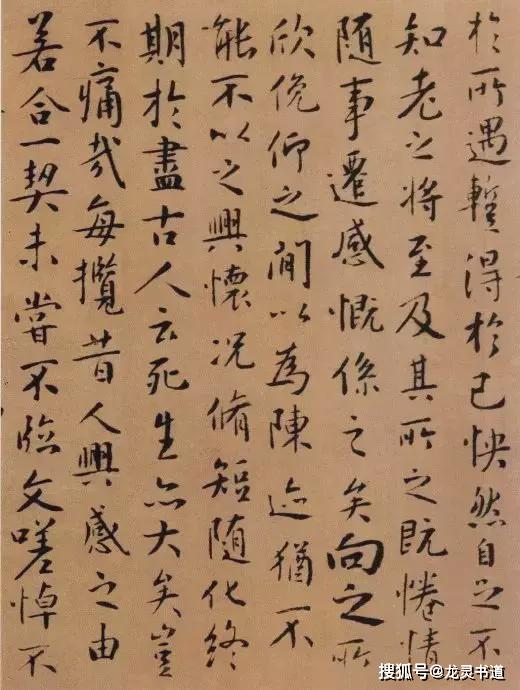 於所遇暫得於己怏然自足不
知老之将至及其所之既惓情
隨事遷感慨係之矣向之所
欣俛仰之間以為陳迹猶不
能不以之興懷况脩短隨化終
期於盡古人云死生亦大矣豈
不痛哉每攬昔人興感之由
若合一契未甞不臨文嗟悼不
搜狐号@龙灵书道